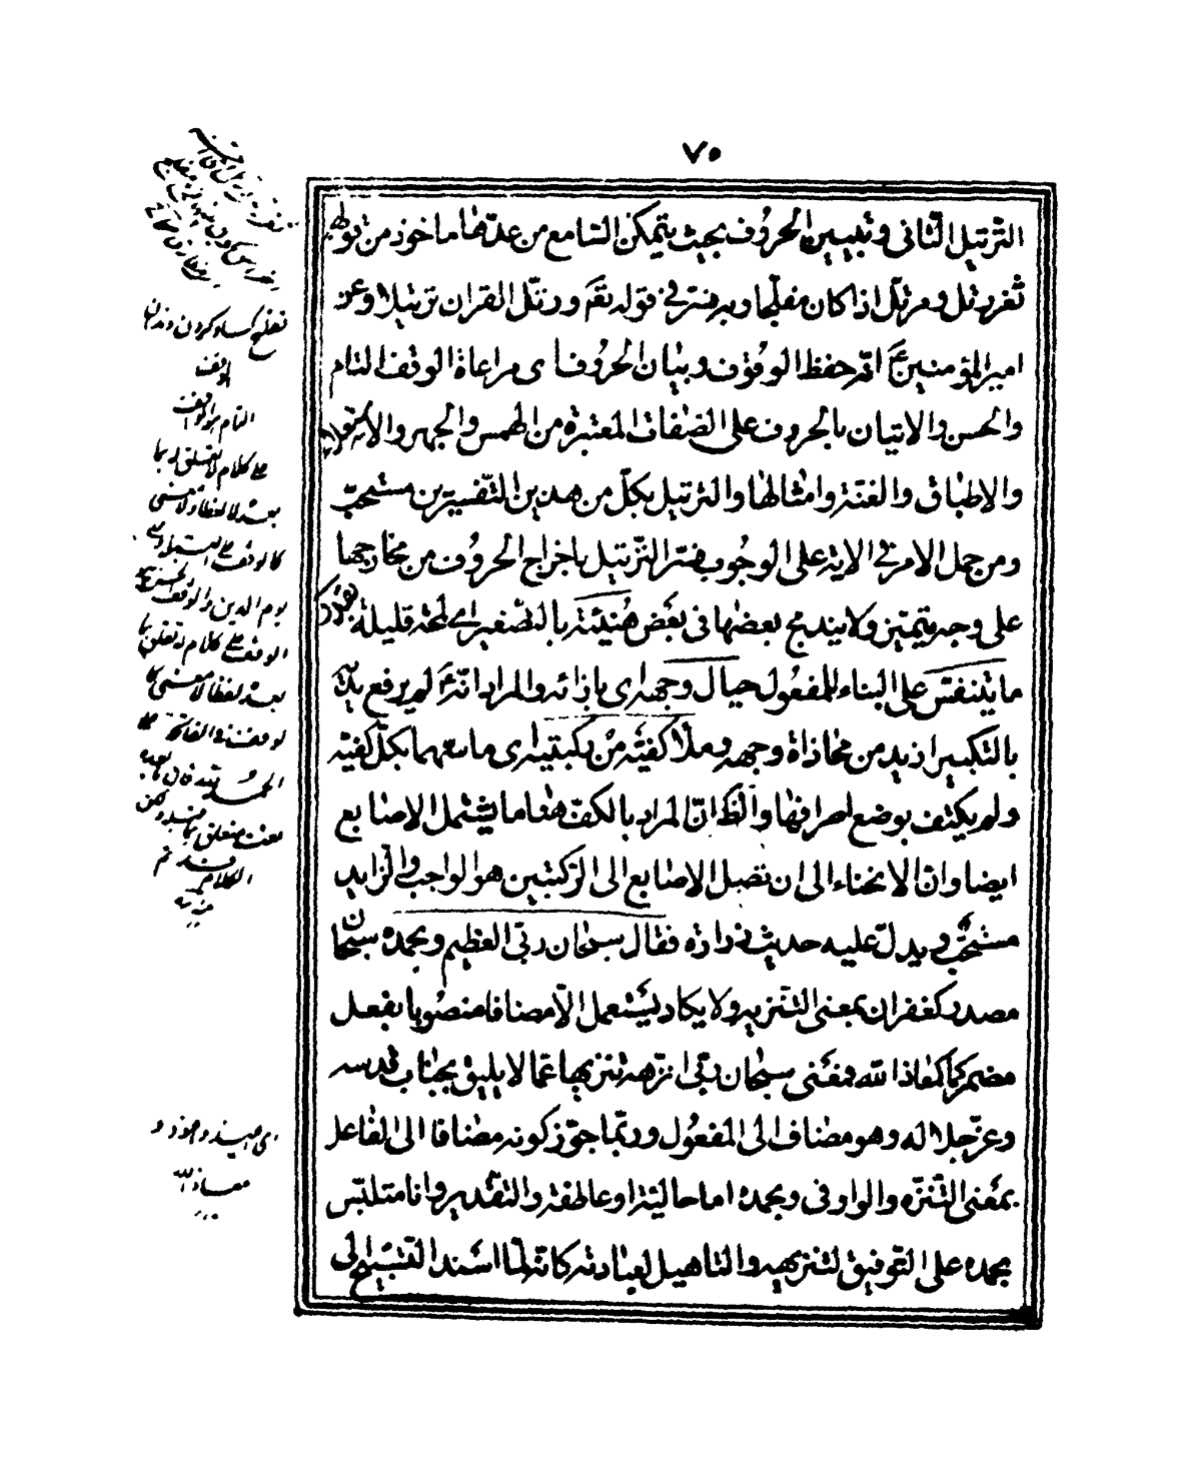 ٧٥
الترتيل التأنى وتبيين الحروف بحيث يتمكن السامع من عدها ماخوذ من قولهم
ثغر رتل ومرتل اذا كان مفلجا وبه فسر في قوله تعم ورتل القران ترتيلا وعن
امير المؤمنين ع انه حفظ الوقوف وبيان الحروف اى مراعاة الوقف التام
والحسن والاتيان بالحروف على الصفات المعتبرة من الهمس والجهر والاستعلاء
والاطباق والغنة وامثالها والترتيل بكل من هذين التفسيرين مستحب
ومن حمل الامر في الاية على الوجوب فسر الترتيل باخراج الحروف من مخارجها
على وجه يتميز ولا يندمج بعضها فى بعض هنيئة بالتصغير اى لحظة قليلة بقدر
ما يتنفس على البناء للمفعول حيال وجهه اى بازائه والمراد انه ع لم يرفع يديه
بالتكبير ازيد من محاذاة وجهه وملأ كفيه من ركبتيه اى ماسهما بكل كفيه
ولم يكتف بوضع اطرافها والظ ان المراد بالكف هنا ما يشتمل الاصابع
ايضا وان الانحناء الى ان تصل الاصابع الى الركبتين هو الواجب والزايد
مستحب ويدل عليه حديث زرارة فقال سبحان ربى العظيم وبحمده سبحان
مصدر كغفران بمعنى التنزيه ولا يكاد يستعمل الا مضافا منصوبا بفعل
مضمر كمعاذ الله فمعنى سبحان ربى انزهه تنزيها عما لا يليق بجناب قدسه
وعز جلاله وهو مضاف الى المفعول وربما جوز كونه مضافا الى الفاعل
بمعنى التنزه والواو فى وبحمده اما حالية او عاطفة والتقدير وانا متلبس
بحمده على التوفيق لتنزيهه والتاهيل لعبادته كانه لما اسند التسبيح الى
تفليج كشاده كردن دندان
الوقف
التام هو الوقف
على كلام لا تعلق له بما
بعده لا لفظا ولا معنى
كالوقف على
يوم الدين والوقف الحسن هو
الوقف على كلام له تعلق بما
بعده لفظا لا معنى كما
لو وقف فى الفاتحة على
الحمد لله فان ما بعده
متعلق بما قبله ولكن
الكلام قد تم
منه
معاذ الله